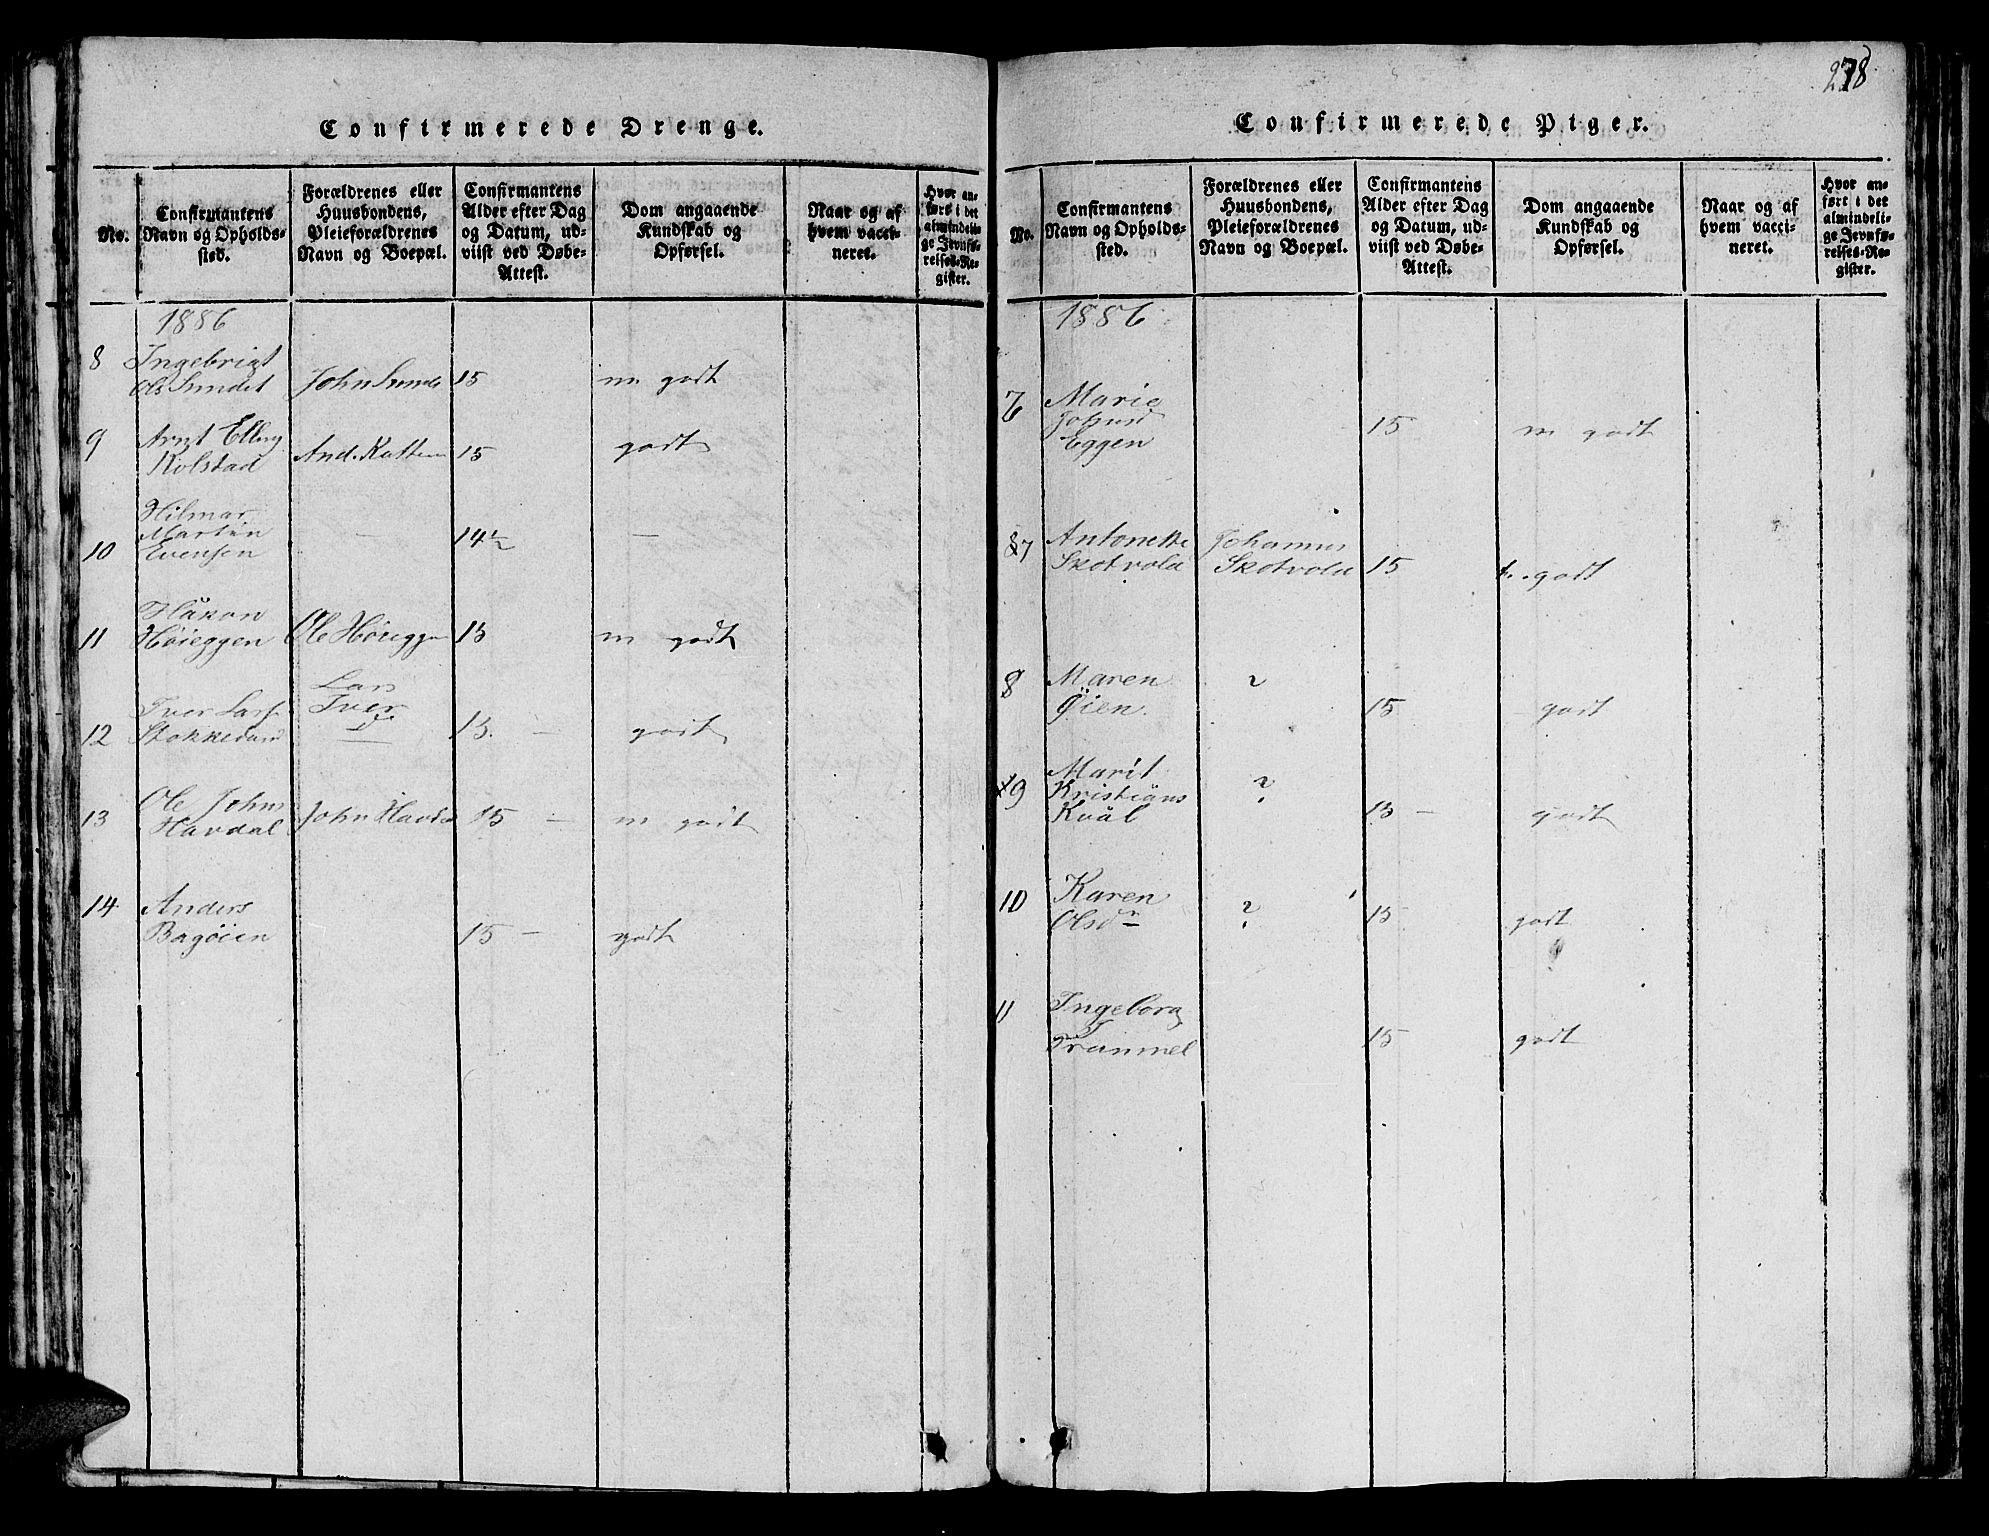 278
Confirmerede Drenge.
No.
Confirmantens
Navn og Opholds-
sted.
Forældrenes eller
Huusbondens,
Pleieforældrenes
Navn og Boepæl.
Confirmantens
Alder efter Dag
og Datum, ud-
viist ved Døbe-
Attest.
Dom angaaende
Kundskab og
Opførsel.
Naar og af
hvem vacci-
neret.
Hvor an-
ført i det
almindeli-
ge Jevnfø-
relses-Re-
gister.
1886
8 Ingebrigt
Ols Sundet John Sunde 15 m godt
9 Arnt Elling
Kolstad And. Kattem 15 godt
Hilmar
Martin — 14½ —
10 Evensen
Håkon
11 Høieggen Ole Høieggen 15 m godt
Lars
Iver Lars Iver
12 Stokkedand — 15. — godt
Ole Johns
13 Havdal John Havda 15 — m godt
14 Anders
Bagøien 15 — godt
Confirmerede Piger.
No.
Confirmantens
Navn og Opholds-
sted.
Forældrenes eller
Huusbondens,
Pleieforældrenes
Navn og Boepæl.
Confirmantens
Alder efter Dag
og Datum, ud-
viist ved Døbe-
Attest.
Dom angaaende
Kundskab og
Opførsel.
Naar og af
hvem vacci-
neret.
Hvor an-
ført i det
almindeli-
ge Jevnfø-
relses-Re-
gister.
1886
6 Marie
Johnsd 15 m godt
Eggen
7 Antonette Johannes
Skotvold Skotvold 15 t. godt
8 Maren ?
Øien. 15 godt
Marit
9 Kristians ?
Kvål 15 — godt
10 Karen
Olsdr ? 15 godt
11 Ingeborg
Trammel 15 godt